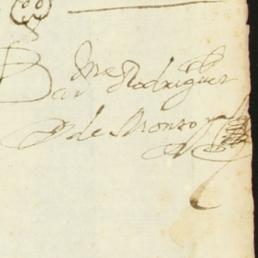 Bar me Rodriguez
de Monroy